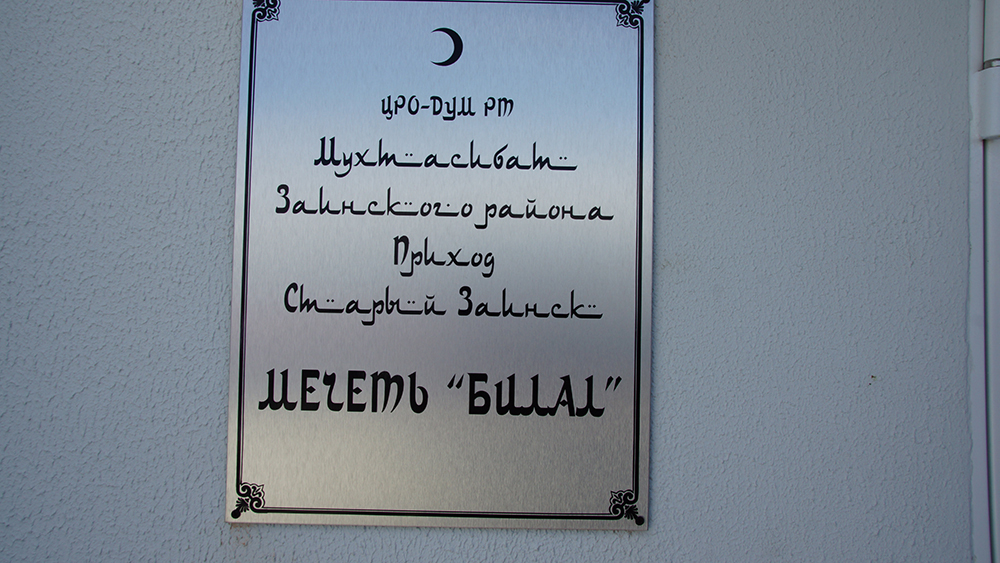 ЦРО-ДУМ РТ
Мухтасибат
Заинского района
Приход
Старый Заинск
МЕЧЕТЬ “БИЛАЛ”